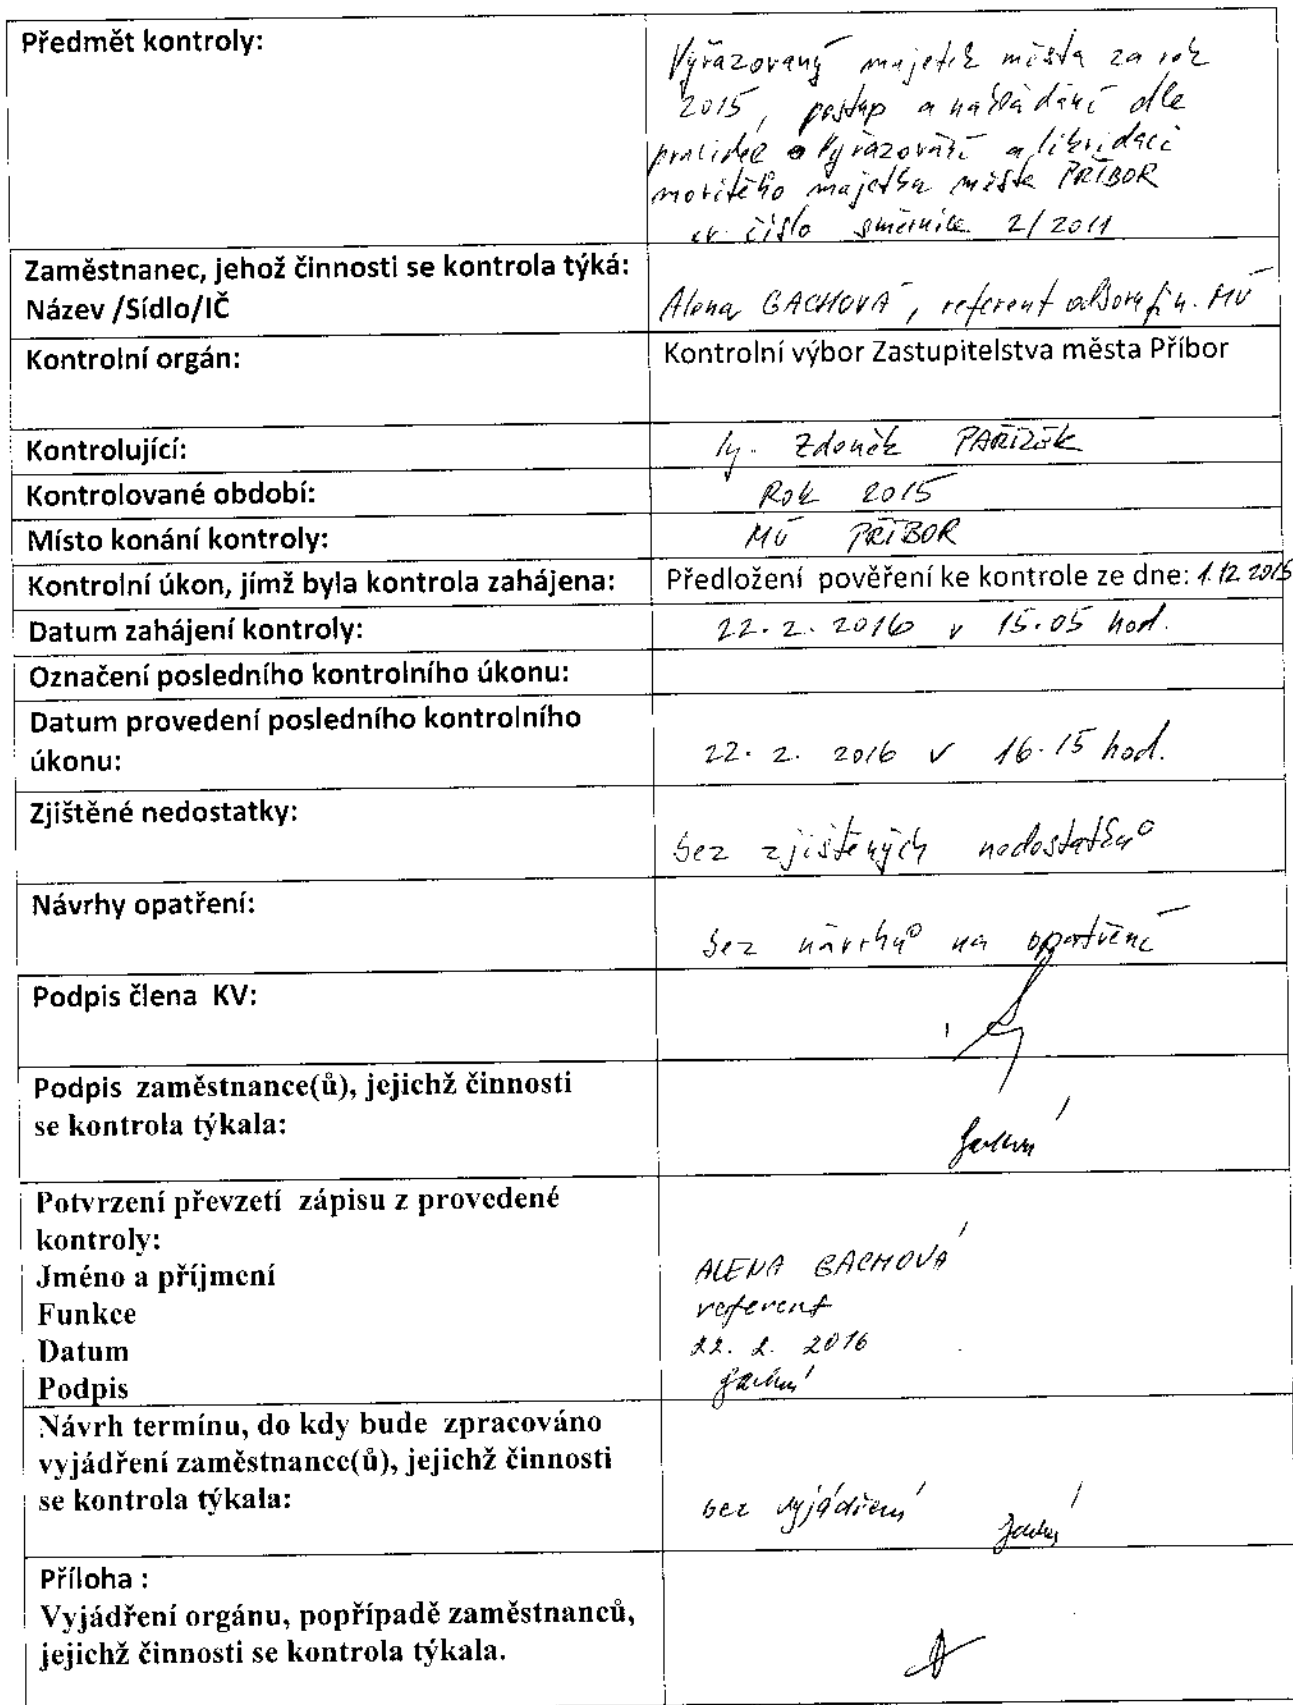 Předmět kontroly:
Vyřazovaný majetek města za rok
2015, postup a nakládání dle
pravidel o Vyřazování a likvidaci
movitého majetku města PŘÍBOR
ev. číslo směrnice 2/2011
Zaměstnanec, jehož činnosti se kontrola týká:
Název /Sídlo/IČ
Alena GACHOVÁ, referent odboru fin. MÚ
Kontrolní orgán:
Kontrolní výbor Zastupitelstva města Příbor
Kontrolující:
Ing. Zdeněk PAŘÍZEK
Kontrolované období:
Rok 2015
Místo konání kontroly:
MÚ PŘÍBOR
Kontrolní úkon, jímž byla kontrola zahájena:
Předložení pověření ke kontrole ze dne: 1.12.2015
Datum zahájení kontroly:
22.2.2016 v 15.05 hod.
Označení posledního kontrolního úkonu:
Datum provedení posledního kontrolního
úkonu:
22.2.2016 v 16.15 hod.
Zjištěné nedostatky:
bez zjištěných nedostatků
Návrhy opatření:
bez návrhů na opatření
Podpis člena KV:
Podpis zaměstnance(ů), jejichž činnosti
se kontrola týkala:
Potvrzení převzetí zápisu z provedené
kontroly:
Jméno a příjmení
ALENA GACHOVÁ
Funkce
referent
Datum
22. 2. 2016
Podpis
Návrh termínu, do kdy bude zpracováno
vyjádření zaměstnance(ů), jejichž činnosti
se kontrola týkala:
bez vyjádření
Příloha :
Vyjádření orgánu, popřípadě zaměstnanců,
jejichž činnosti se kontrola týkala.